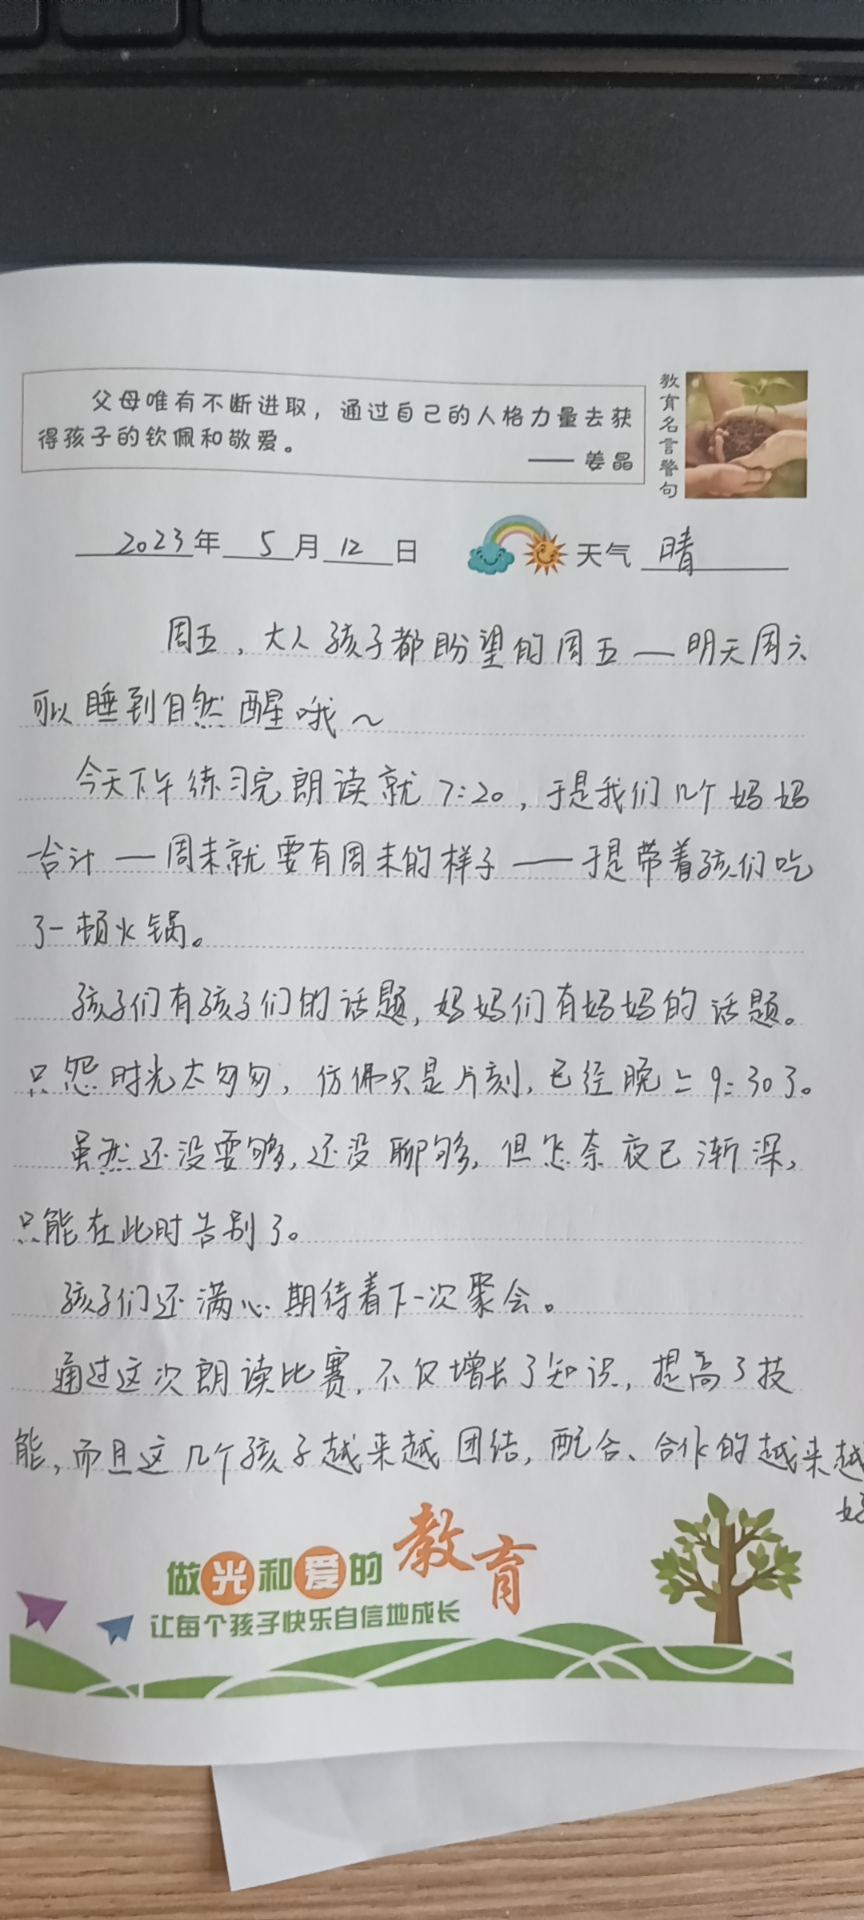 父母唯有不断进取，通过自己的人格力量去获
得孩子的钦佩和敬爱。
——姜晶
教育名言警句
2023年 5月12日
天气 晴
周五，大人孩子都盼望的周五—明天周六
可以睡到自然醒哦～
今天下午练习完朗读就7:20，于是我们几个妈妈
合计—周末就要有周末的样子——于是带着孩们吃
了一顿火锅。
孩子们有孩子们的话题，妈妈们有妈妈的话题。
只怨时光太匆匆，仿佛只是片刻，已经晚上9:30了。
虽然还没耍够，还没聊够，但怎奈夜已渐深，
只能在此时告别了。
孩子们还满心期待着下一次聚会。
通过这次朗读比赛，不仅增长了知识，提高了技
能，而且这几个孩子越来越团结，配合、合作的越来越
好
做光和爱的教育
让每个孩子快乐自信地成长